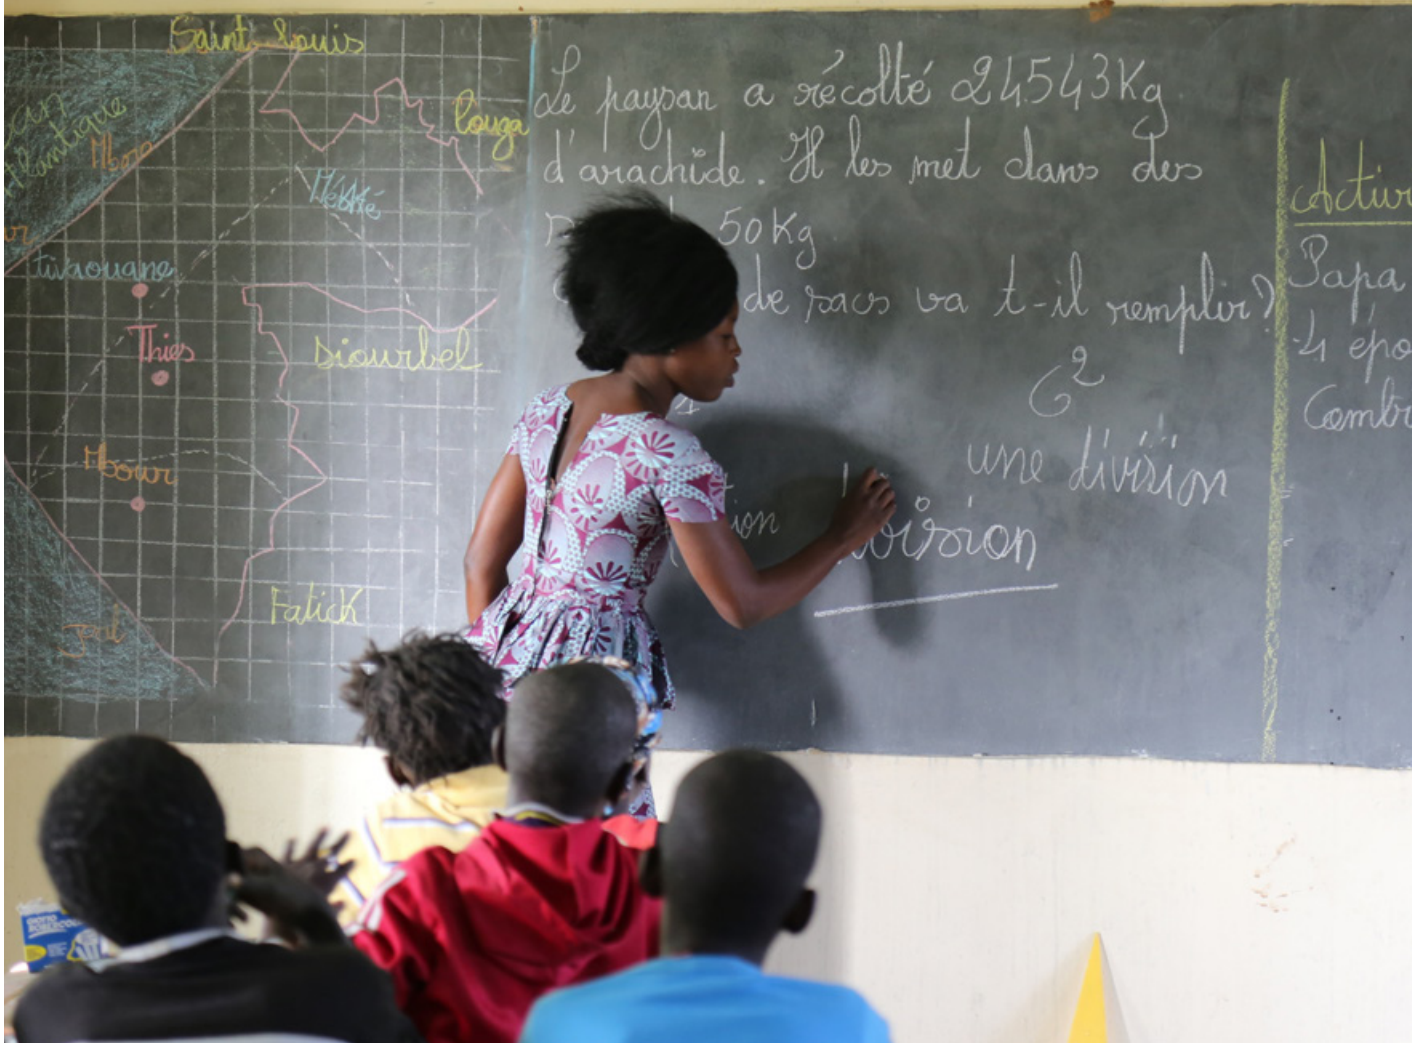 Saint Louis
Louga
Mboro
Mékhé
tivaouane
Thies
Diourbel
Mbour
Fatick
Joal
Le paysan a récolté 24543Kg
d'arachide. Il les met dans des
50Kg
de sacs va t-il remplir?
C²
une division
ion
Activi
Papa
4 épo
Combi